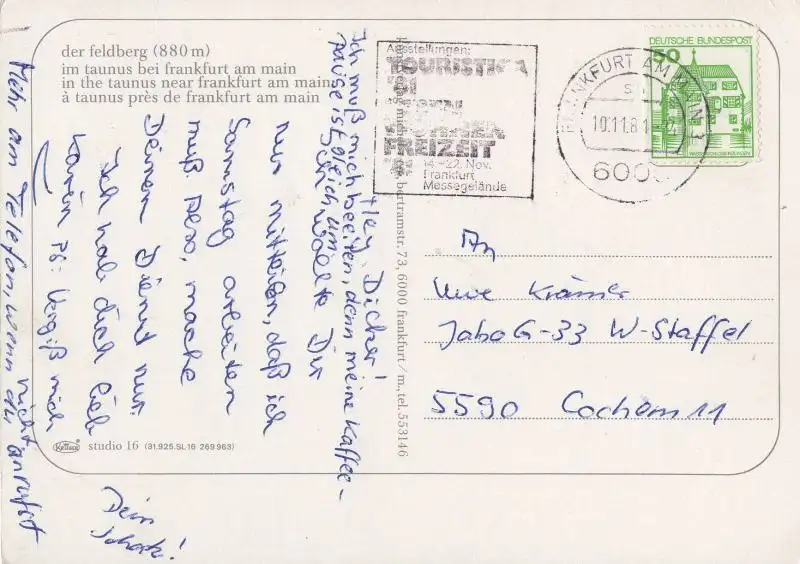 der feldberg (880 m)
im taunus bei frankfurt am main
in the taunus near frankfurt am main
à taunus près de frankfurt am main
Ausstellungen:
TOURISTIKA
FREIZEIT
14.-22. Nov.
Frankfurt
Messegelände
FRANKFURT AM MAIN 3
10.11.81
600
DEUTSCHE BUNDESPOST
50
An
Uwe Krämer
JaboG-33 W-Staffel
5590 Cochem 11
bertramstr. 73, 6000 frankfurt/m., tel. 553146
Hey, Dicker!
Ich wollte Dir
nur mitteilen, daß ich
Samstag arbeiten
muß also, mache
Deinen Dienst nur.
Ich hab dich lieb
PS: Vergiß mich
nicht
Ich muß mich beeilen, denn meine Kaffee-
pause ist gleich um
Mehr am Telefon, wenn du anrufst
Dein
Schatz!
Krüger
studio 16 (31.925.SL16 269 963)